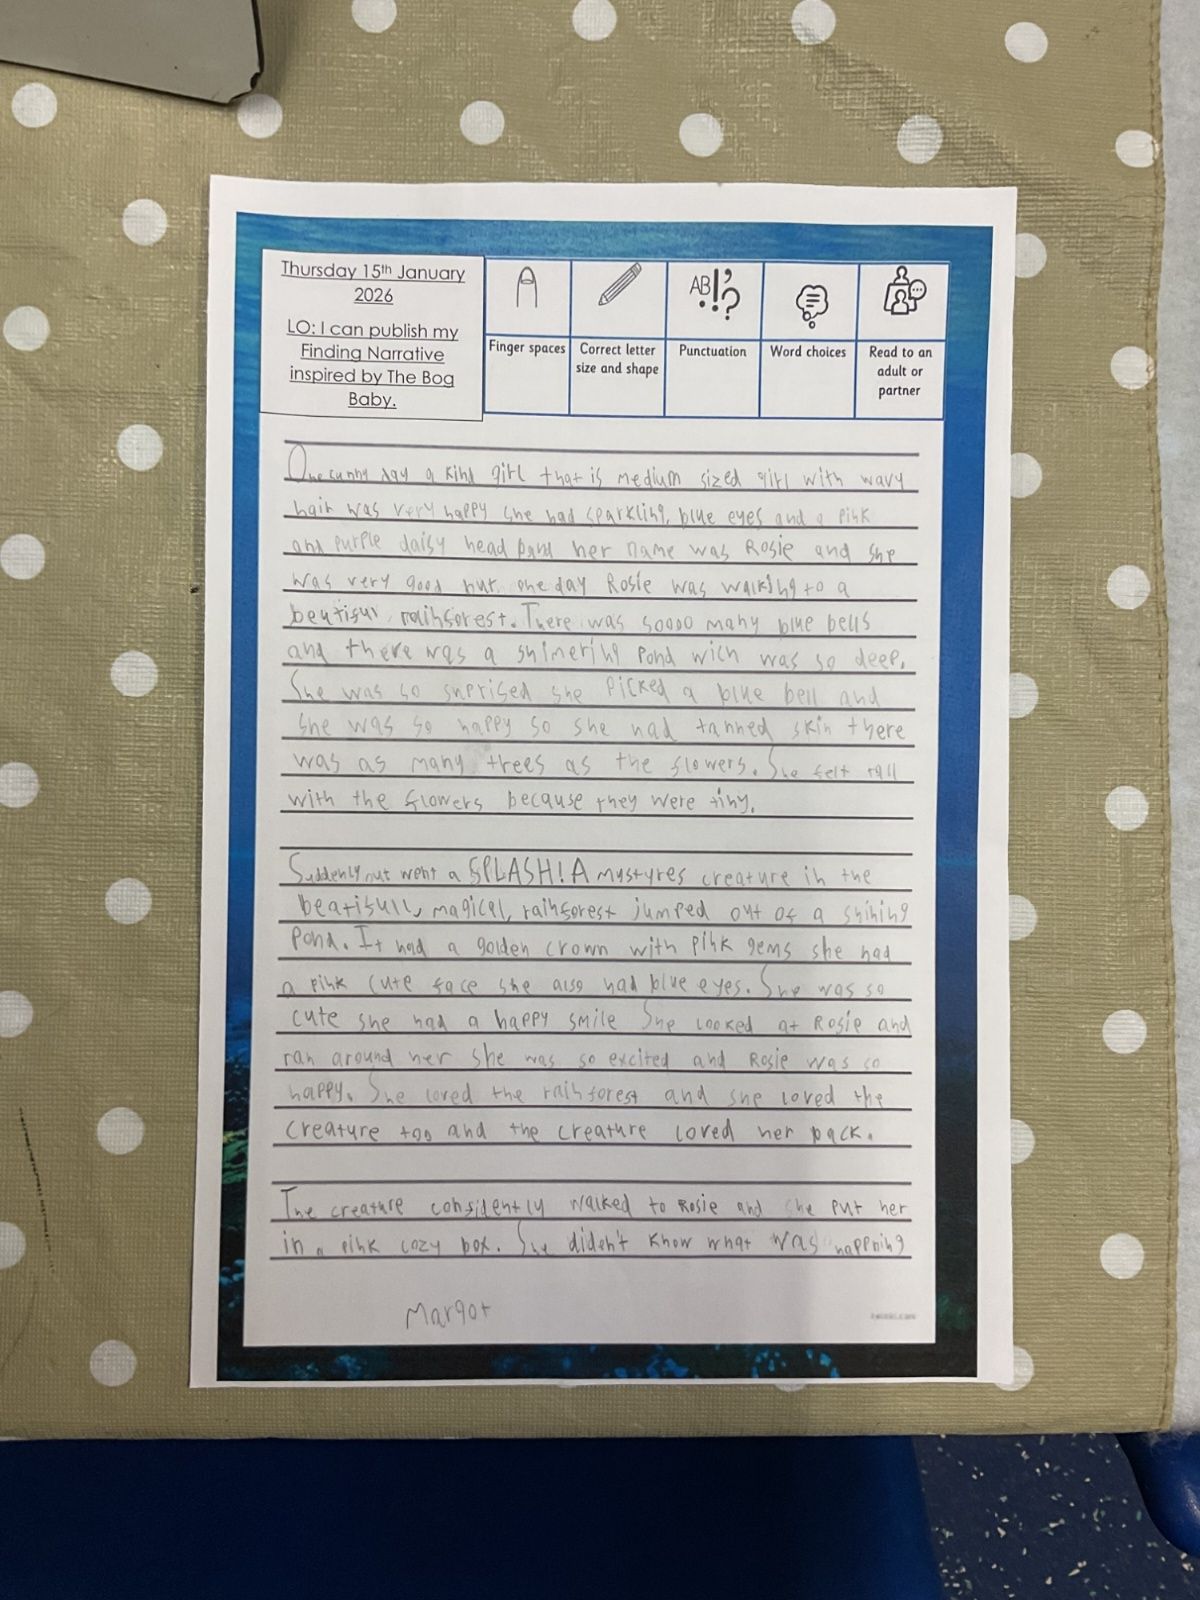 Thursday 15th January
2026
LO: I can publish my
Finding Narrative
inspired by The Bog
Baby.
AB!?
Finger spaces
Correct letter
size and shape
Punctuation
Word choices
Read to an
adult or
partner
One sunny day a kind girl that is medium sized girl with wavy
hair was very happy she had sparkling, blue eyes and a pink
and purple daisy head band her name was Rosie and she
was very good but one day Rosie was walking to a
beutiful, rainforest. There was soooo many blue bells
and there was a shimering pond wich was so deep.
She was so suprised she picked a blue bell and
she was so happy so she had tanned skin there
was as many trees as the flowers. She felt tall
with the flowers because they were tiny.
Suddenly out went a SPLASH! A mystyres creature in the
beatifull, magical, rainforest jumped out of a shining
pond. It had a golden crown with pink gems she had
a pink cute face she also had blue eyes. She was so
cute she had a happy smile She looked at Rosie and
ran around her she was so excited and Rosie was so
happy. She loved the rainforest and she loved the
creature too and the creature loved her back.
The creature confidently walked to Rosie and she put her
in a pink cozy box. She diden't know what was happning
Margot